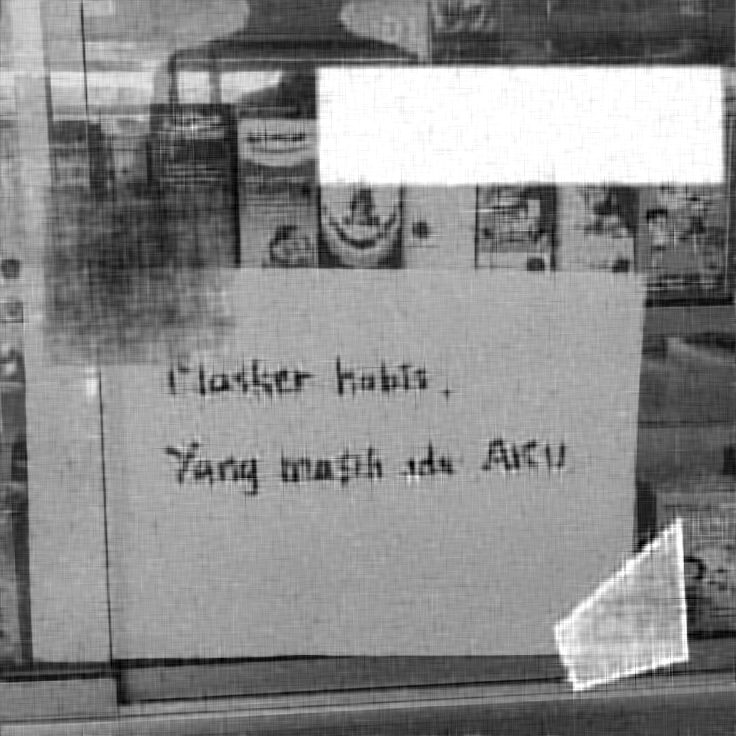 Masker habis,
Yang masih ada AKU